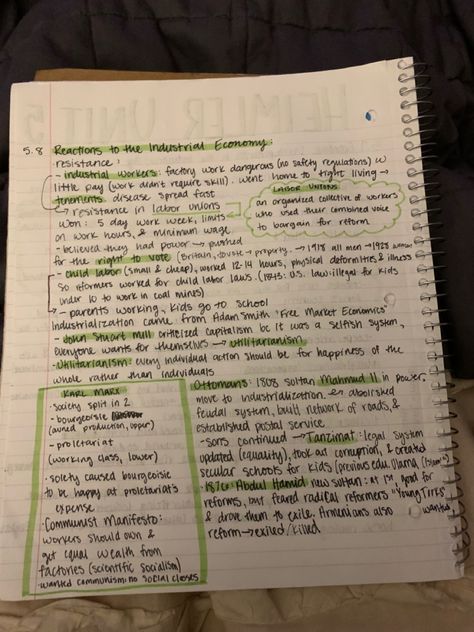 5.8 Reactions to the Industrial Economy:
· resistance:
- industrial workers: factory work dangerous (no safety regulations) w
little pay (work didn't require skill). went home to tight living →
tenements. disease spread fast
→ resistance in labor unions
won: 5 day work week, limits
on work hours, & minimum wage
- believed they had power → pushed
for the right to vote (Britain, house → property. → 1918 all men → 1928 women
LABOR UNIONS
an organized collective of workers
who used their combined voice
to bargain for reform
- child labor (small & cheap), worked 12-14 hours, physical deformities & illness
so reformers worked for child labor laws. (1843: U.S. law: illegal for kids
under 10 to work in coal mines)
- parents working, kids go to school
Industrialization came from Adam Smith "Free Market Economics"
- John Stuart Mill critized capitalism bc it was a selfish system,
everyone wants for themselves → utilitarianism
- Utilitarianism: every individual action should be for happiness of the
whole rather than individuals
KARL MARX
· society split in 2
- bourgeoisie
(owned production, upper)
- proletariat
(working class, lower)
· soiety caused bourgeoisie
to be happy at proletariat's
expense
· Communist Manifesto:
workers should own &
get equal wealth from
factories (scientific socialism)
· wanted communism: no social classes
Ottomans: 1808 sultan Mahmud II in power,
move to industrialization. → abolished
feudal system, built network of roads, &
established postal service
- sons continued → Tanzimat: legal system
updated (equality), took out corruption, & created
secular schools for kids (previous edu. Ulama, (Islamic)
· 1876: Abdul Hamid new sultan: at 1st, good for
reforms, but feared radical reformers "Young Turks"
& drove them to exile. Armenians also wanted
reform → exiled/killed
HEIMLER UNIT 5